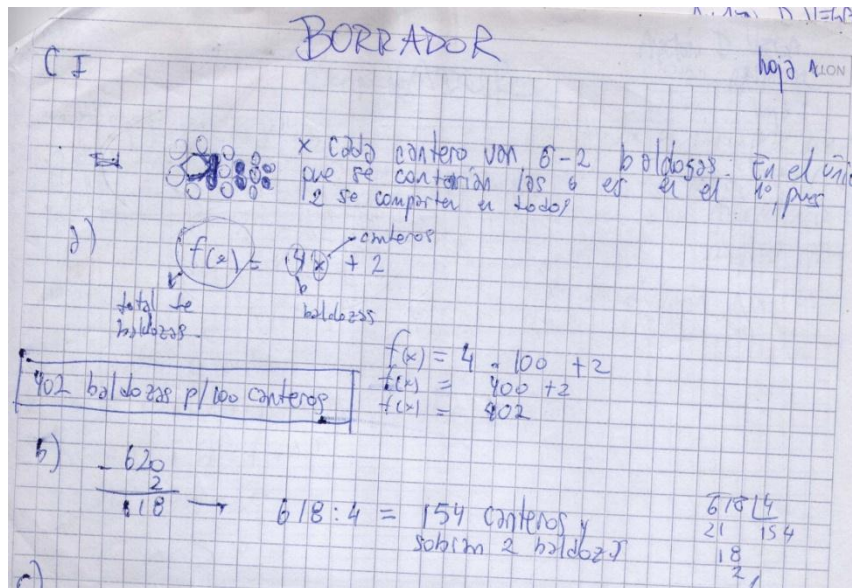 BORRADOR
C I
hoja
x cada cantero van 6-2 baldosas. En el únic
que se contarían las 6 es en el 1°, pues
2 se comparten en todos
a)
f(x) = 4x + 2
canteros
total de
baldozas.
baldozas
f(x) = 4 . 100 + 2
f(x) = 400 + 2
f(x) = 402
402 baldozas p/100 canteros
b)
- 620
2
618 → 618 : 4 = 154 canteros y
sobran 2 baldozas
618 4
21 154
18
2
c)